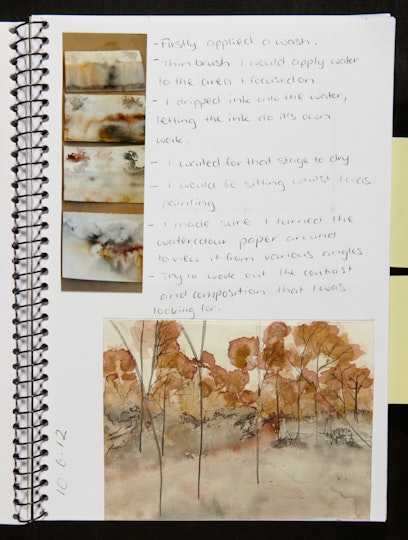 - Firstly applied a wash.
- Thin brush I would apply water
to the area I focused on.
- I dripped ink onto the water,
letting the ink do it's own
work.
- I waited for that stage to dry.
- I would be sitting whilst I was
painting
- I made sure I turned the
watercolour paper around
to view it from various angles
- Try to work out the contrast
and composition that I was
looking for.
10.6.12